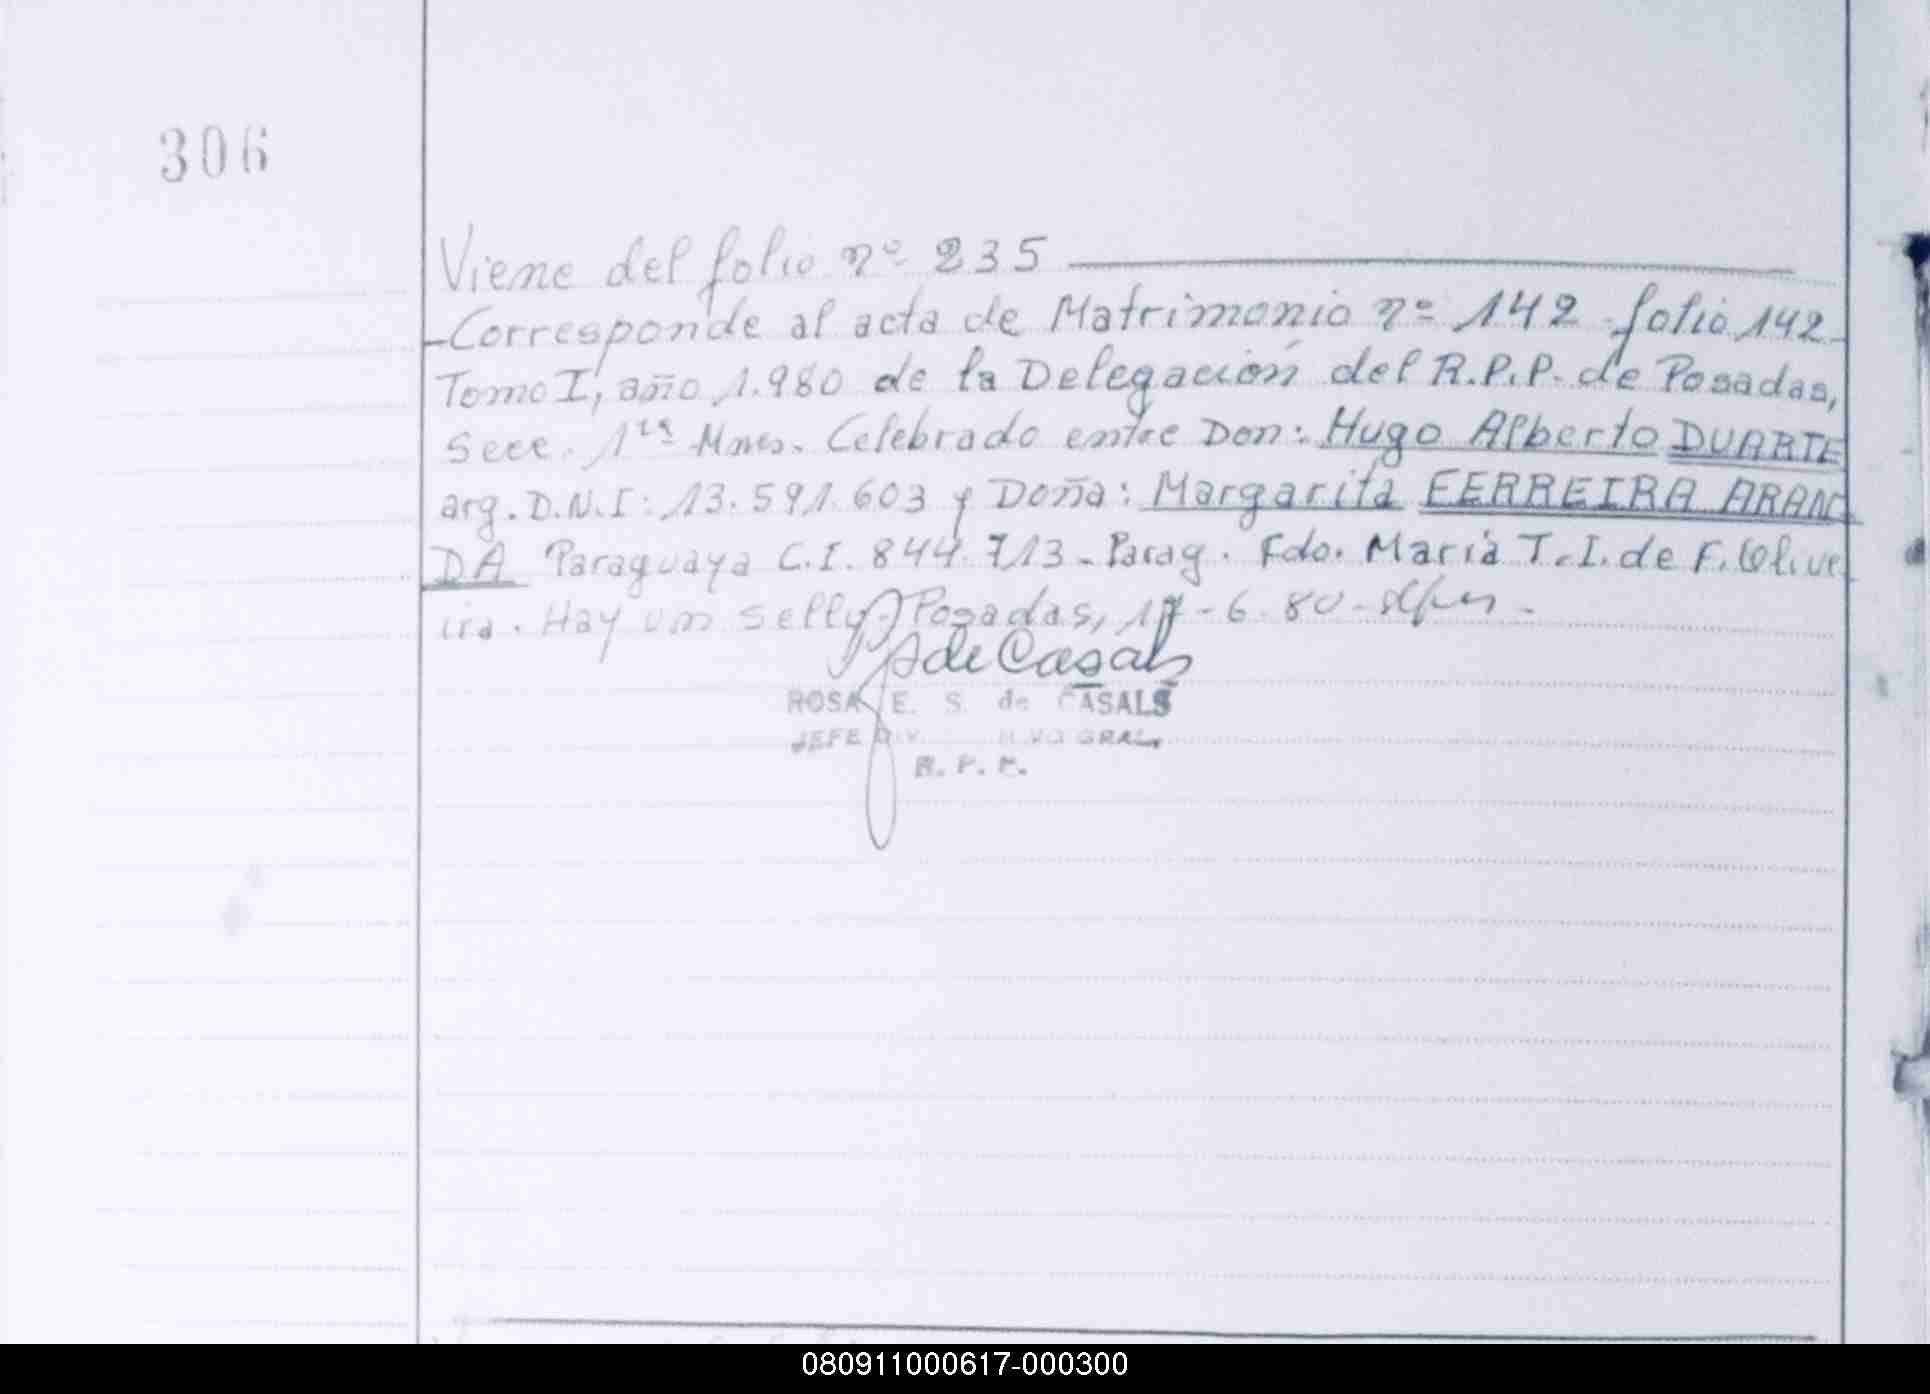 306
Viene del folio nº 235
-Corresponde al acta de Matrimonio nº 142 folio 142-
Tomo I, año 1.980 de la Delegación del R.P.P. de Posadas,
Secc. 1ra Mnes. Celebrado entre Don: Hugo Alberto DUARTE
arg. D.N.I: 13.591.603 y Doña: Margarita FERREIRA ARAN
DA Paraguaya C.I. 844.713- Parag. Fdo. Maria T. I. de F. Olive
ira. Hay un sello. Posadas, 17-6-80-
S de Casals
ROSA E. S. de CASALS
JEFE DIV. GRAL.
R. P. P.
080911000617-000300